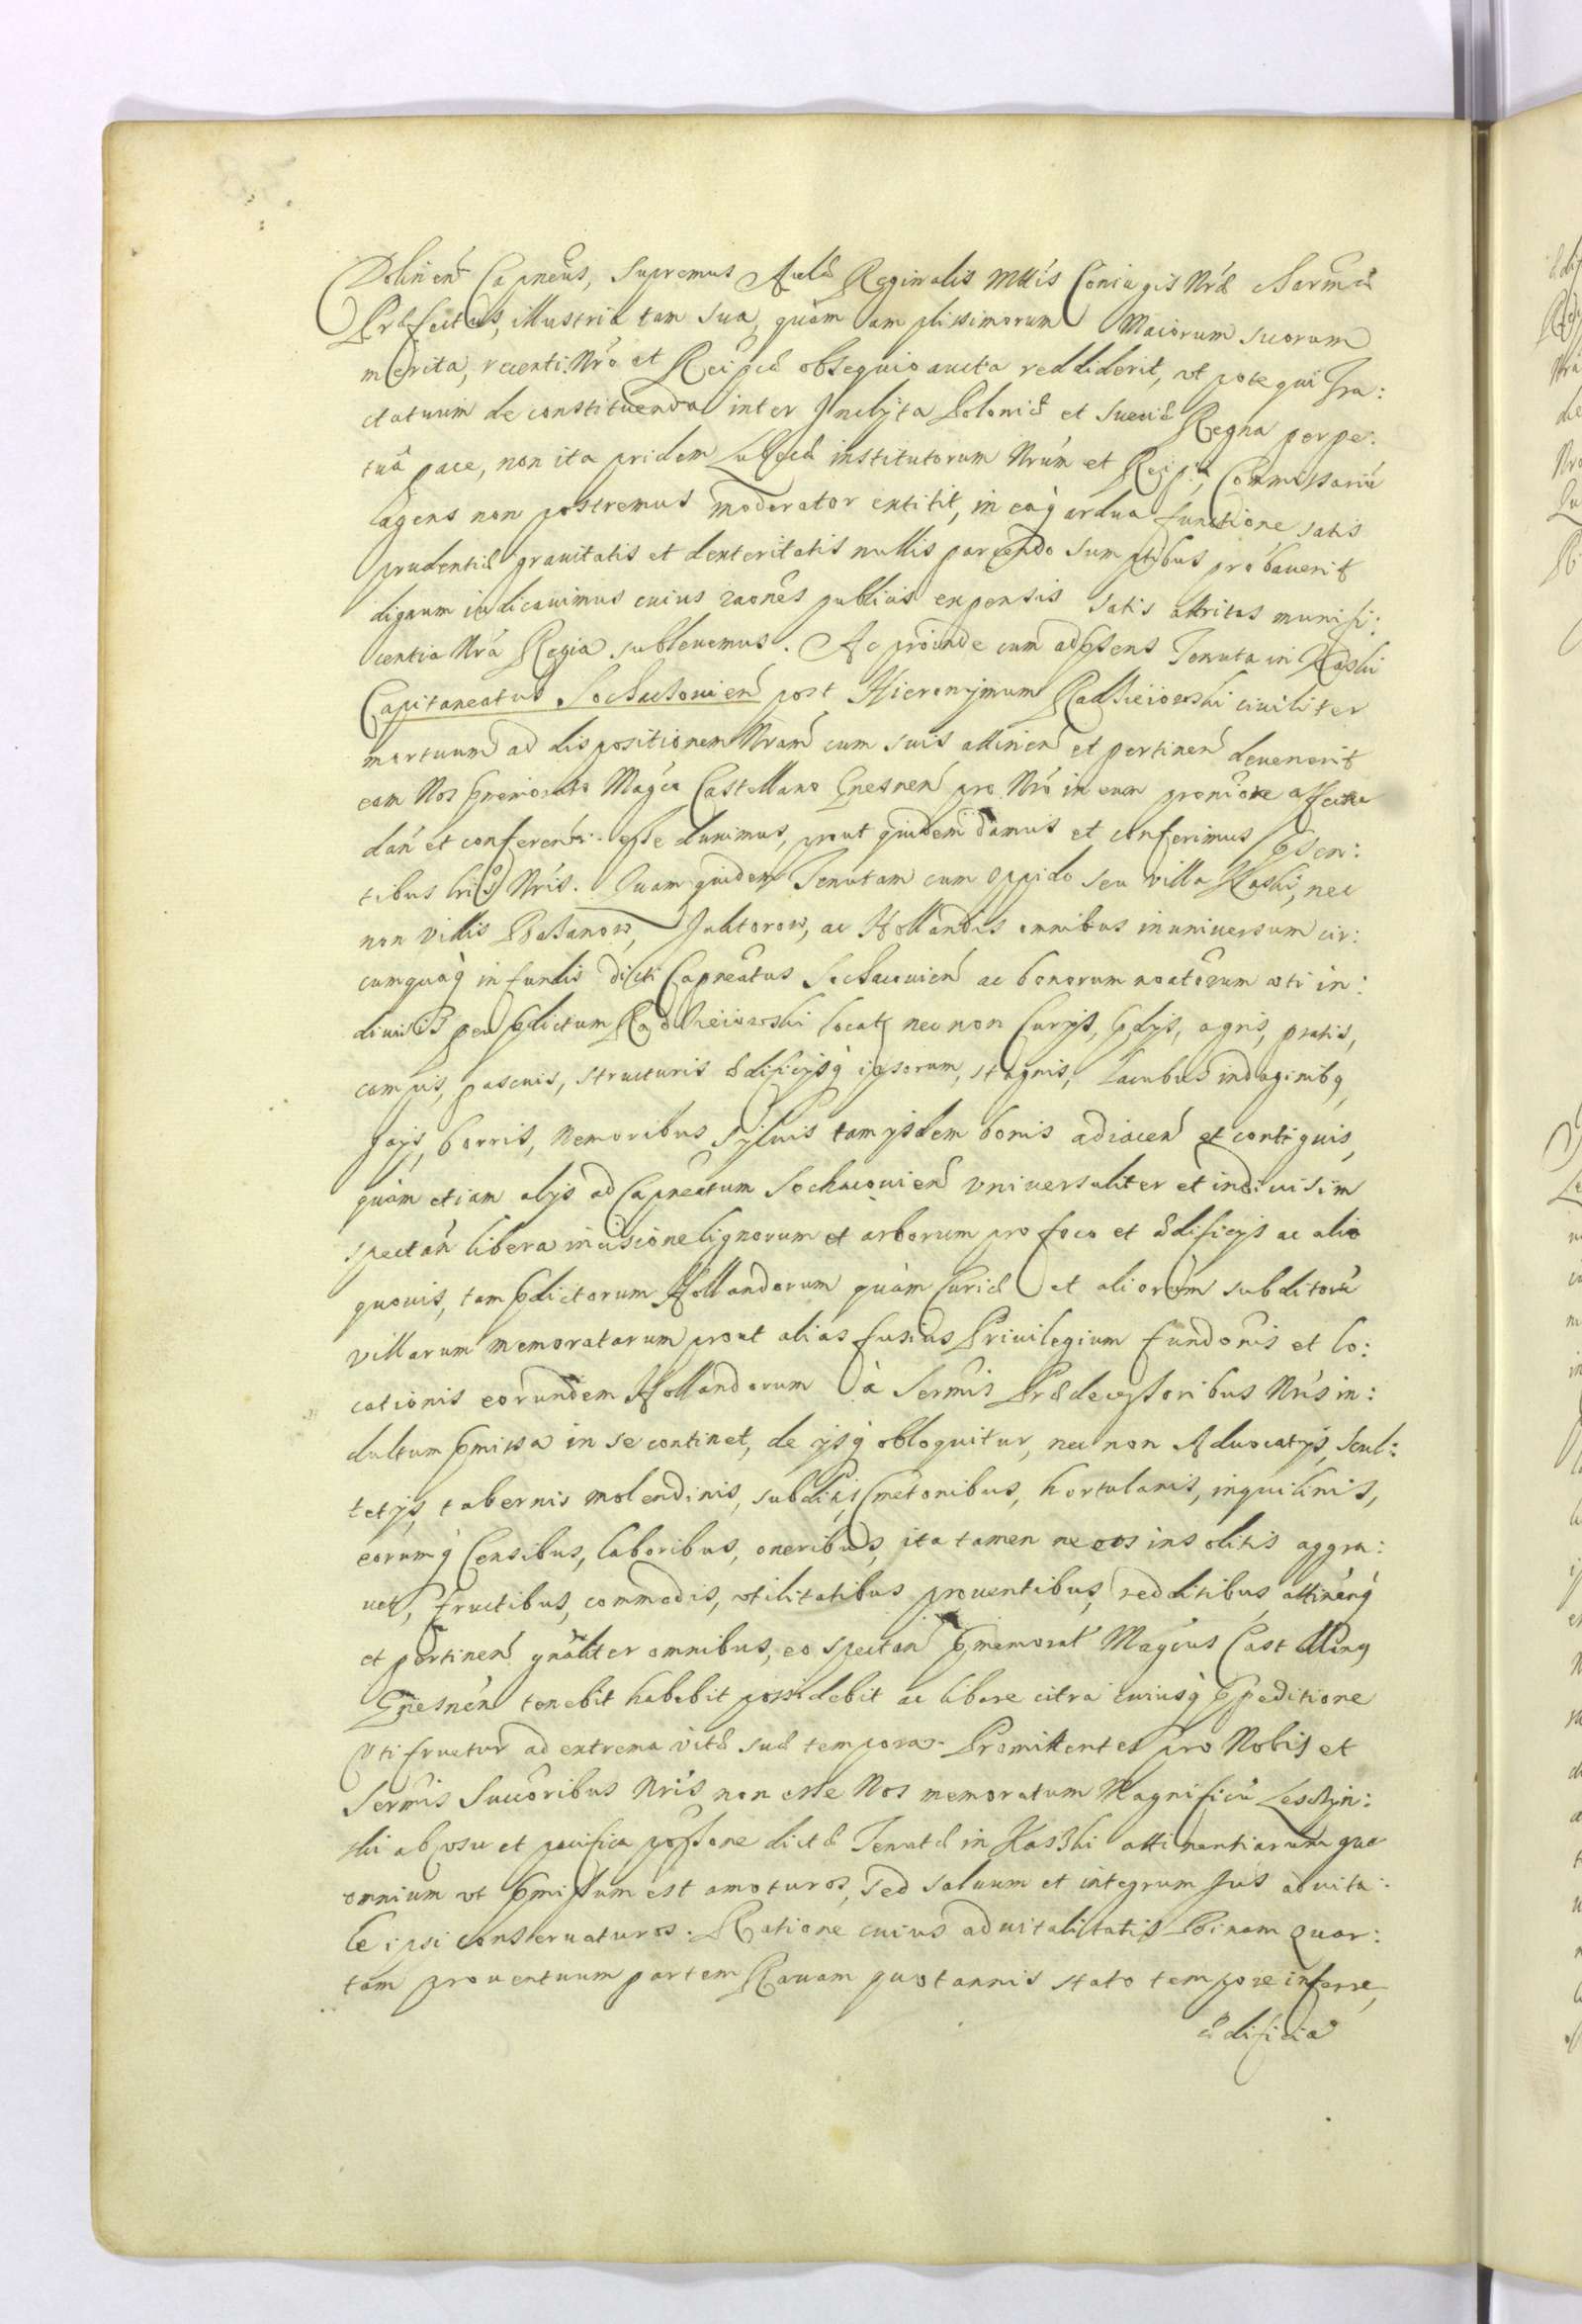 Dolinen̄ Capneus, Supremus Aulæ Reginalis Mttis Coniugis Nræ Charmæ
Præfectus, illustria tam sua, quàm amplissimorum Maiorum suorum
merita, recenti Nro et Reipcæ obsequio aucta reddiderit, vt pote qui Tra:
ctatuum de constituenda inter Inclyta Poloniæ et Sueciæ Regna perpe:
tuâ pace, non ita pridem Lubecæ institutorum Nrûm et Reip: Commissariũ
agens non postremus moderator extitit, in eaq̀ ardua functione satis
prudentiæ grauitatis et dexteritatis nullis parcendo sumptibus probauerit
dignum iudicauimus cuius raones publicis expensis satis attritas munifi:
centia Nrâ Regia subleuemus. Ac proinde cum ad pͣsens Tenuta in Kaski
Capitaneatus Sochachouien̄ post Hieronymum Radzieiowski ciuiliter
mortuum ad dispositionem Nram cum suis attinen̄ et pertinen̄ deuenerit
eam Nos pͣmemorato Magco Castellano Gnesnen̄ pro Nro in eum proniore affectu
dan̄ et conferen̄ esse duximus, prout quidem damus et conferimus pͣsen:
tibus lris Nris. Quam quidem Tenutam cum oppido seu villa Kaski, nec
non villis Bahanow, Juktorow, ac Hollandis omnibus in uniuersum cir:
cumquaq̀ in fundis dicti Capneatus Sochacouien̄ ac bonorum noatorum vti in:
diuisis per pͣdictum Radzieiowski locatꝫ nec non Curijs, pͣdijs, agris, pratis,
campis, pascuis, structuris ædificijsq̀ ipsorum, stagnis, lacubus indaginibꝗ,
Gays, borris, nemoribus sylvis tam ysdem bonis adiacen̄ et contiguis,
quàm etiam alijs ad Capneatum Sochacouien̄ vniversaliter et indiuisim
spectan̄ libera incisione lignorum et arborum pro foco et ædificijs ac alio
quouis, tam pͣdictorum Hollandorum quàm Curiæ et aliorum subditorũ
villarum memoratarum prout alias fusius Priuilegium fundonis et lo:
cationis eorundem Hollandorum à Sermis Prædecessoribus Nris in:
dultum pͣmissa in se continet, de ijsq̀ obloquitur, nec non Aduocatijs, Scul:
tetijs, tabernis molendinis, subditis, Cmetonibus, hortulanis, inquilinis,
eorumq̀ Censibus, laboribus, oneribus, ita tamen ne eos insolitis aggra:
uet, fructibus, commodis, vtilitatibus prouentibus, redditibus, attinenq̀
et pertinen̄ gnaliter omnibus, eo spectan̄ pͣmemorat Magcus Castellanꝗ
Gnesnen̄ tenebit habebit possidebit ac libere citra cuiusq̀ pͣpeditione
vti fruetur ad extrema vitæ suæ tempora. Promittentes pro Nobis et
Sermis Succoribus Nris non esse Nos memoratum Magnificũ Leszczyn:
ski ab vsu et pacifica possone dictæ Tenutæ in Kaski attinentiarumque
omnium vt pͣmissum est amoturos, sed saluum et integrum Jus aduita:
le ipsi conseruaturos. Ratione cuius aduitalitatis Binam Quar:
tam prouentuum partem Rauam quotannis stato tempore inferre,
ædificia